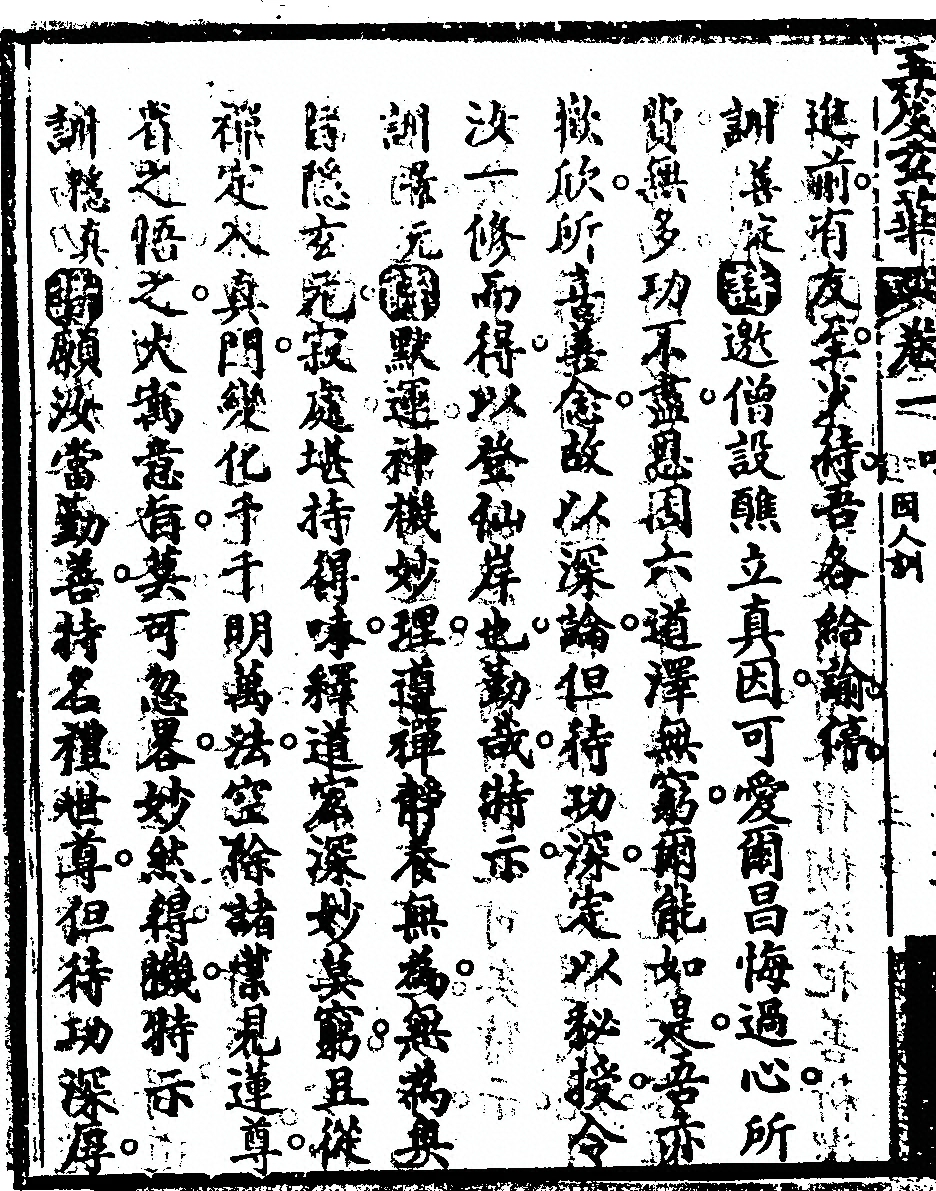 玉發玄華 卷一 因人訓
進前有友至少待吾各給諭停
訓善誕 詩 邀僧設醮立真因可愛爾昌悔過心所
費無多功不盡恩周六道澤無窮爾能如是吾亦
歡欣所喜善念故以深論但待功深定以秘授令
汝一修而得以登仙岸也勤哉特示
訓 元 默運神機妙理遵禪靜養無為無為奧
隱玄死寂處堪持得味釋道宏深妙莫窮且從
禪定入真門變化千千明萬法空除諸業見蓮尊
省之悟之大寓意旨莫可忽畧妙然得機特示
訓穩真 詩 願汝當勤善特名禮世尊但待功深厚